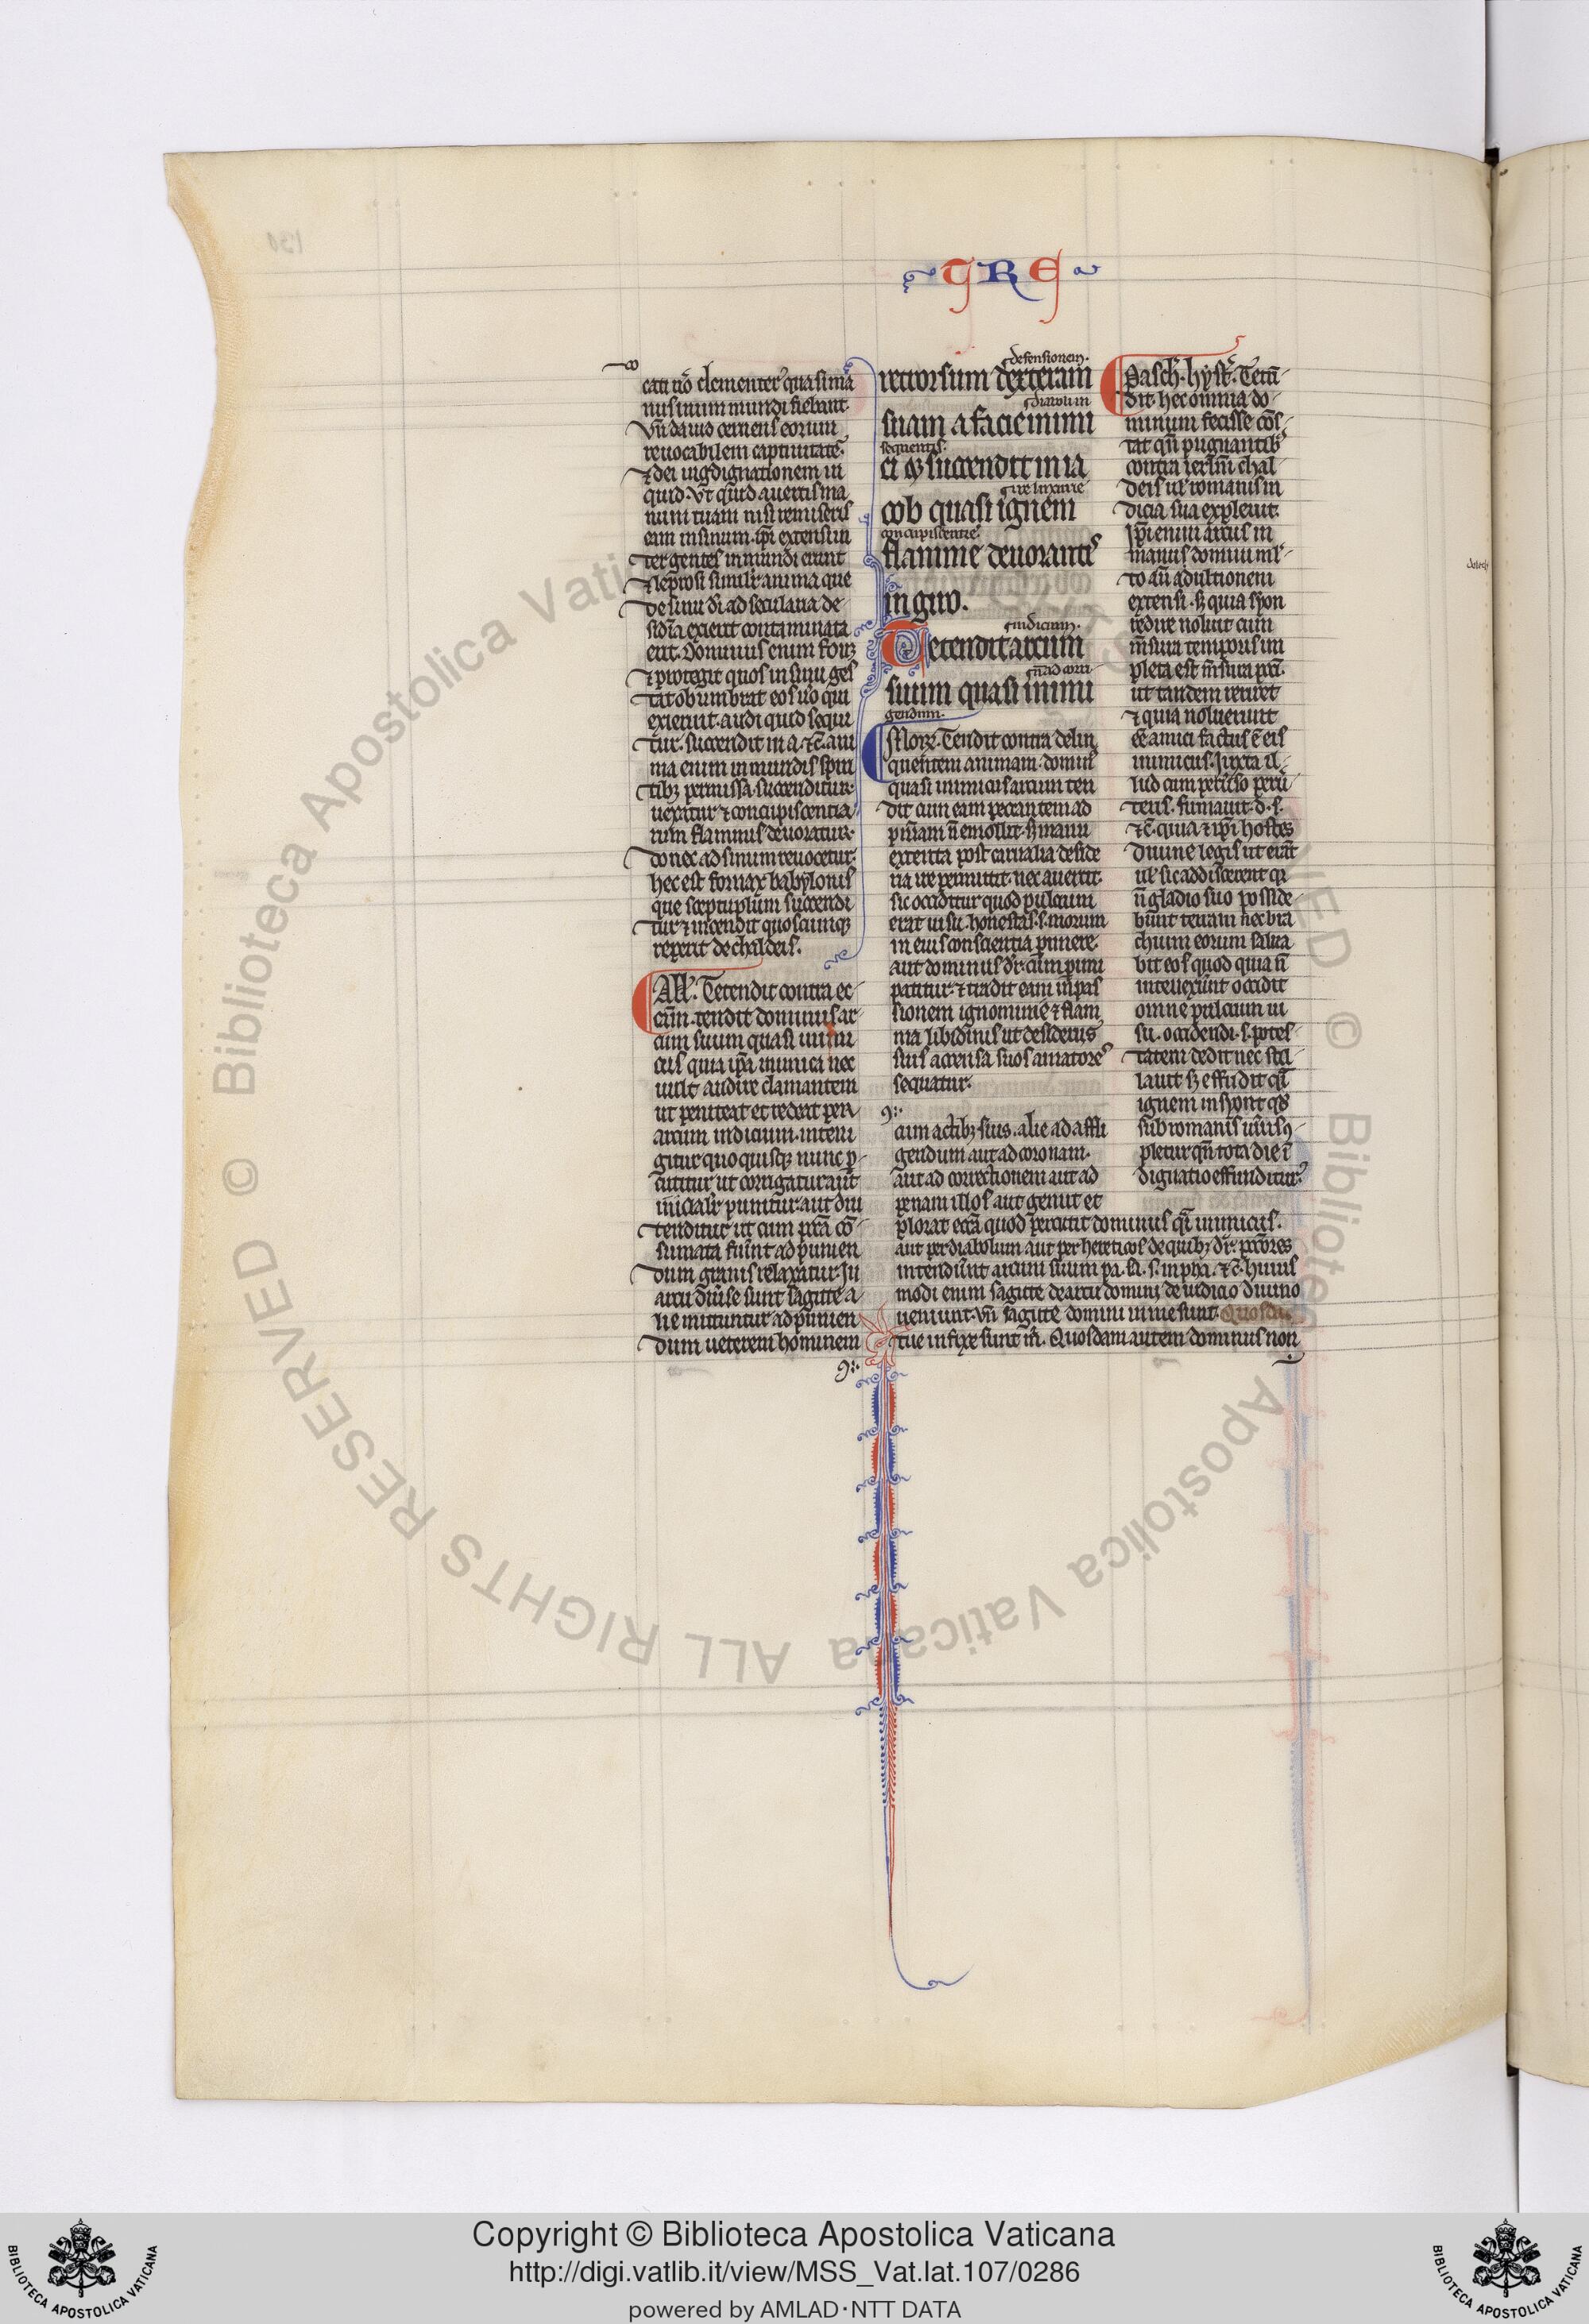 TRE
cati ũo clementer quasi ma
nus in um mundi fiebant.
Vñ dauid cernens eorum
reuocabilem captiuitatē.
quid. Vt quid auertis ma
num tuam nisi remiseris
eam in sinum. ip̃i extensi in
ter gentes inmundi erunt
⁊ leprosi simil'r anima que
de sinu dī ad secularia de
sid'ia exierit contaminata
erit. Dominus enim fouꝫ
⁊ protegit quos in sinu ges
tat obumbrat eos ũo qui
exierunt. audi quid sequi
tur. succendit in ia. ⁊c̄. ani
ma enim inmundis spiri
tibꝫ permissa. succenditur.
uexatur ⁊ concupiscentia
rum flammis deuoratur.
donec ad sinum reuocetur.
hec est fornax babylonis
que septuplum succendi
tur ⁊ incendit quoscunqꝫ
repperit de chaldeis.
All'. Tetendit contra ec
cur̃. tendit dominus ar
cum suum quasi inimi
cus quia ip̃a inimica nec
uult audire clamantem
ut peniteat et redeat per
arcum iudicium. intelli
gitur quo quisqꝫ nunc p̱
cutitur ut corrigatur aut̃
iudicial'r punitur. aut diu
tenditur ut cum pc̃ca cō
sumata fuĩnt ad punien
dum grauis relaxatur. In
arcu diũse sunt sagitte a
lie mittuntur ad punien
dum ueterem hominem
defensionem.
retrorsum dexteram
diabolum
suam a facie inimi
sequentis.
ci qꝫ succendit in ia
luxurie
cob quasi ignem
concupiscentie
flamme deuorantis
in giro.
iudicium.
Tetendit arcum
ñ ad corri
suum quasi inimi
gendum.
Moral'. Tendit contra delin
quentem animam. dominꝰ
quasi inimicus arcum ten
dit cum eam peccantem ad
pñiam ñ emollit. sꝫ manu
extenta post carnalia deside
ria ire permittit. nec auertit.
sic occiditur quod pulcrum
erat uisu. honestas .s. morum
in eius conscientia punire.
aut dominus dr̃. cum puni
patitur. ⁊ tradit eam in pas
sionem ignominie ⁊ flam
ma libidinis ut desideriis
suis accensa suos amatores
sequatur.
cum actibꝫ suis. alie ad affli
gendum aut ad coronam.
aut ad correctionem aut ad
penam illos aut genuit et
plorat ecc̃a quod percutit dominus q̃i inimicus.
aut per diabolum aut per hereticos de quibꝫ dr̃. pcc̃ores
intendeĩnt arcum suum pa. sa. s. in pha. ⁊c̄. huius
modi enim sagitte de arcu domini de iudicio diuino
ueniunt. vñ sagitte domini in me sunt. Quosda
tue infixe sunt m̃. Quosdam autem dominus non
Pasch'. hyst'. Teten
dit. hec omnia do
minum fecisse cōs
tat qñ pugnantibꝫ
contra ierl'm chal
deis ul' romanis in
dicia sua expleuit.
Ip̃i enim arcus in
manus domini ml'
to aũ ad ultionem
extensi. sꝫ quia syon
redire noluit cum
m̃sura temporis im
pleta est m̃sura pcc̃i.
ut tandem ueniret
⁊ quia noluerunt
eē amici factus ē eis
inimicus. Iuxta il
lud cum peruerso peru
teris. firmauit. d. s.
⁊c̄. quia ⁊ ip̃i hostes
diuine legis ut erāt
ul' sic addiscerent qꝛ
ñ gladio suo posside
bunt terram nec bra
chium eorum salua
bit eos quod quia ñ
intellexĩnt occidit
omne pulcrum ui
su. occidendi .s. potes
tatem dedit nec stil
lauit sꝫ effudit q̃i
ignem in syon t qd̃
sub romanis uĩus ꝯ
pletur qñ tota die ī
dignatio effunditur.
Copyright © Biblioteca Apostolica Vaticana
http://digi.vatlib.it/view/MSS_Vat.lat.107/0286
powered by AMLAD·NTT DATA
© Biblioteca Apostolica Vaticana ALL RIGHTS RESERVED
BIBLIOTECA APOSTOLICA VATICANA
BIBLIOTECA APOSTOLICA VATICANA